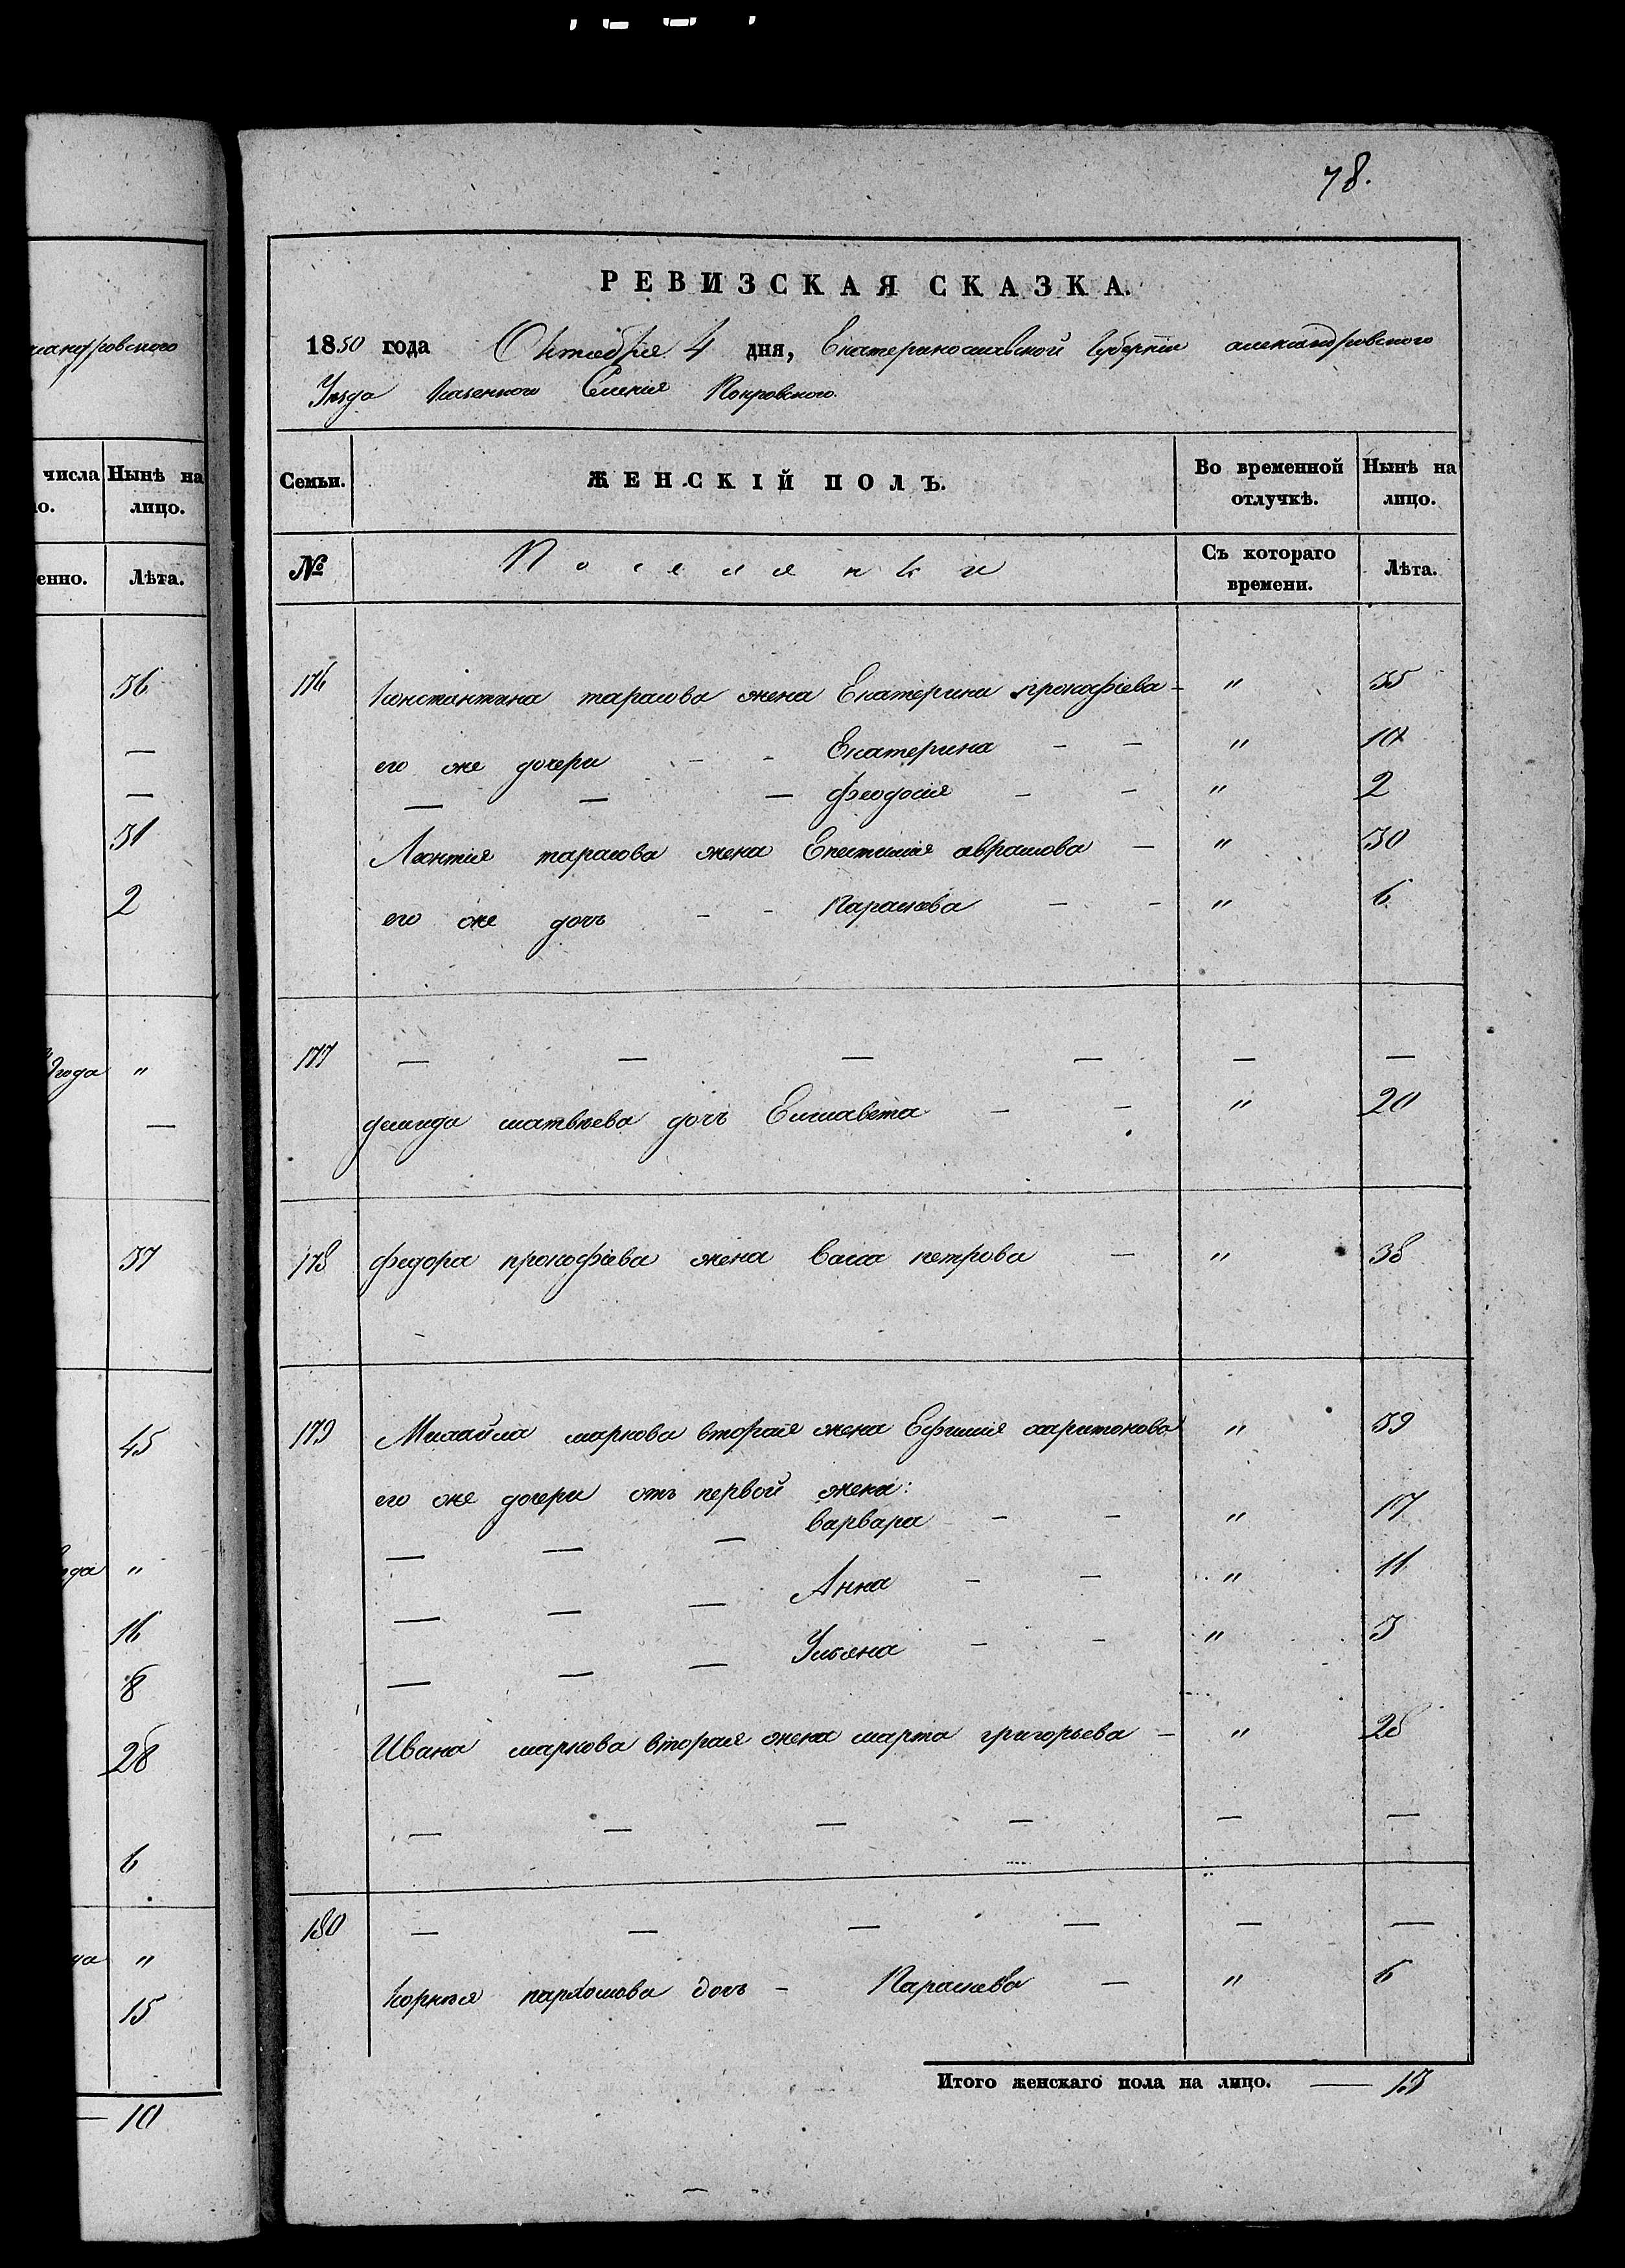 78.
РЕВИЗСКАЯ СКАЗКА.
1850 года Октября 4 дня, Екатеринославской Губернии александровского
Уезда Казенного Селения Покровского.
Семьи. ЖЕНСКІЙ ПОЛЪ. Во временной отлучкѣ. Нынѣ на лицо.
№ Поселянки Съ котораго времени. Лѣта.
176 Константина тарасова жена Екатерина прокофіева - " 35
его же дочери - - Екатерина - - " 10
— — — феодосия - - " 2
Леонтия тарасова жена Епестимия аврамова — " 30
его же дочь - - Парасковя - - " 6
177 — — — — — —
демида матвюева дочь Елисавета — — " 20
178 федора прокофіева жена Васса петрова — " 38
179 Михайла маркова вторая жена Ефимия харитонова " 39
его же дочери отъ первой жены:
— — — варвара - - " 17
— — — Анна - - " 11
— — — Ульяна - - " 3
Ивана маркова вторая жена марта григорьева — " 28
— — — — — —
180 — — — — — —
Корнея пархомова дочь - Парасковя — " 6
Итого женскаго пола на лицо. — 13
александровского
числа Нынѣ на
лицо.
Лѣта.
36
—
—
31
2
года "
—
37
45
"
16
8
28
6
"
15
— 10